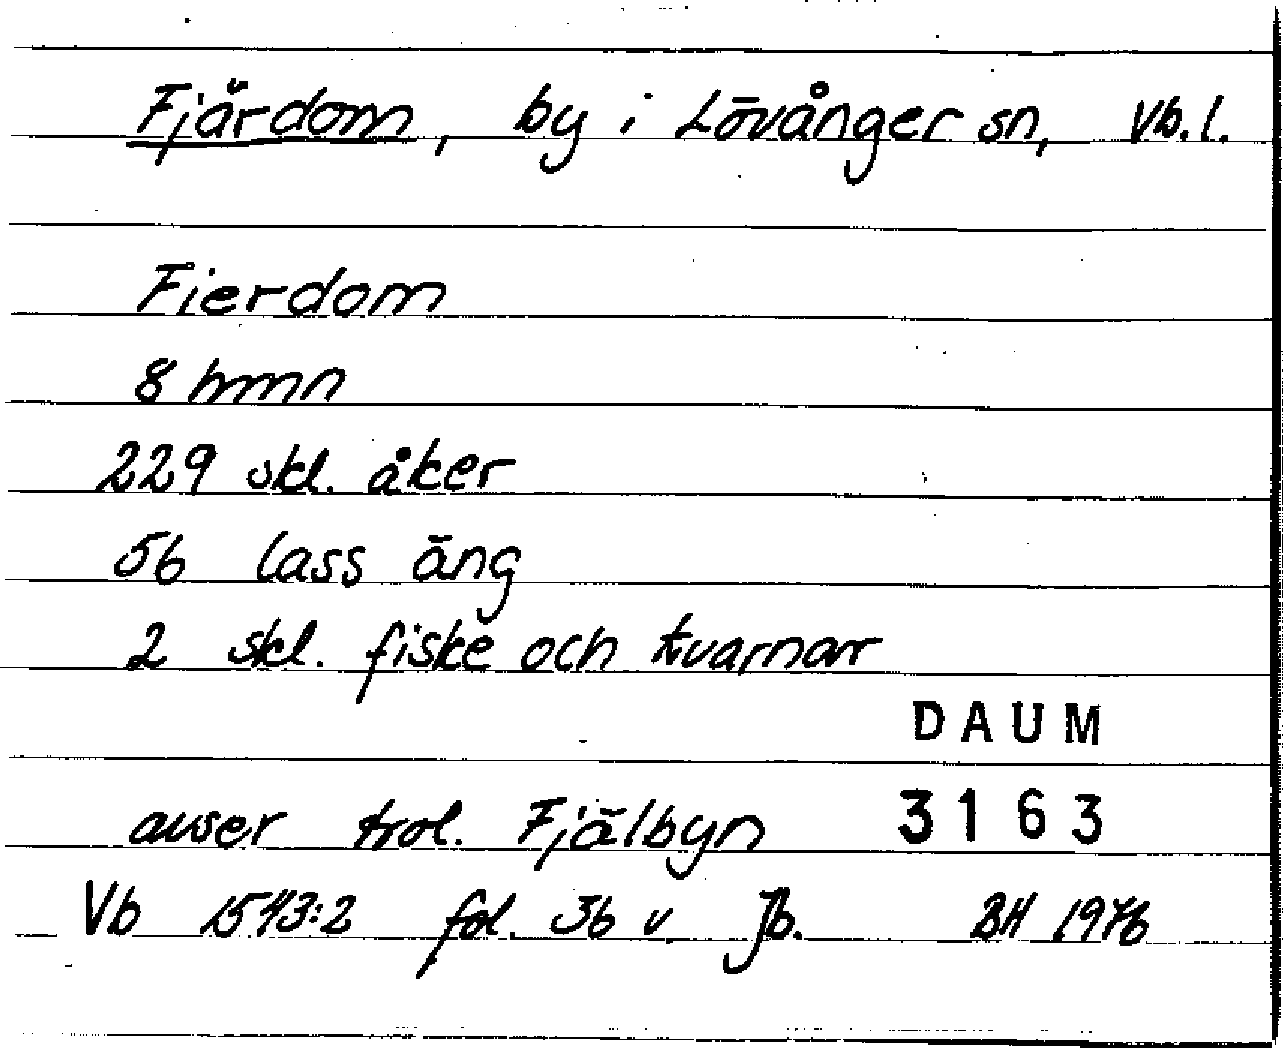 Fjärdom, by i Lövånger sn, Vb.l.
Fierdom
8 hmn
229 skl. åker
56 lass äng
2 skl. fiske och kvarnar
DAUM
avser trol. Fjälbyn 3163
Vb 1543:2 fol. 36 v Jb. BH 1976